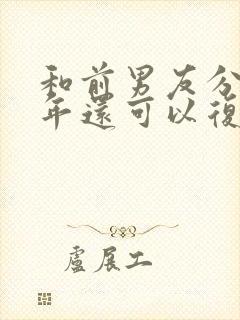 和前男友分
年還可以復
盧展工